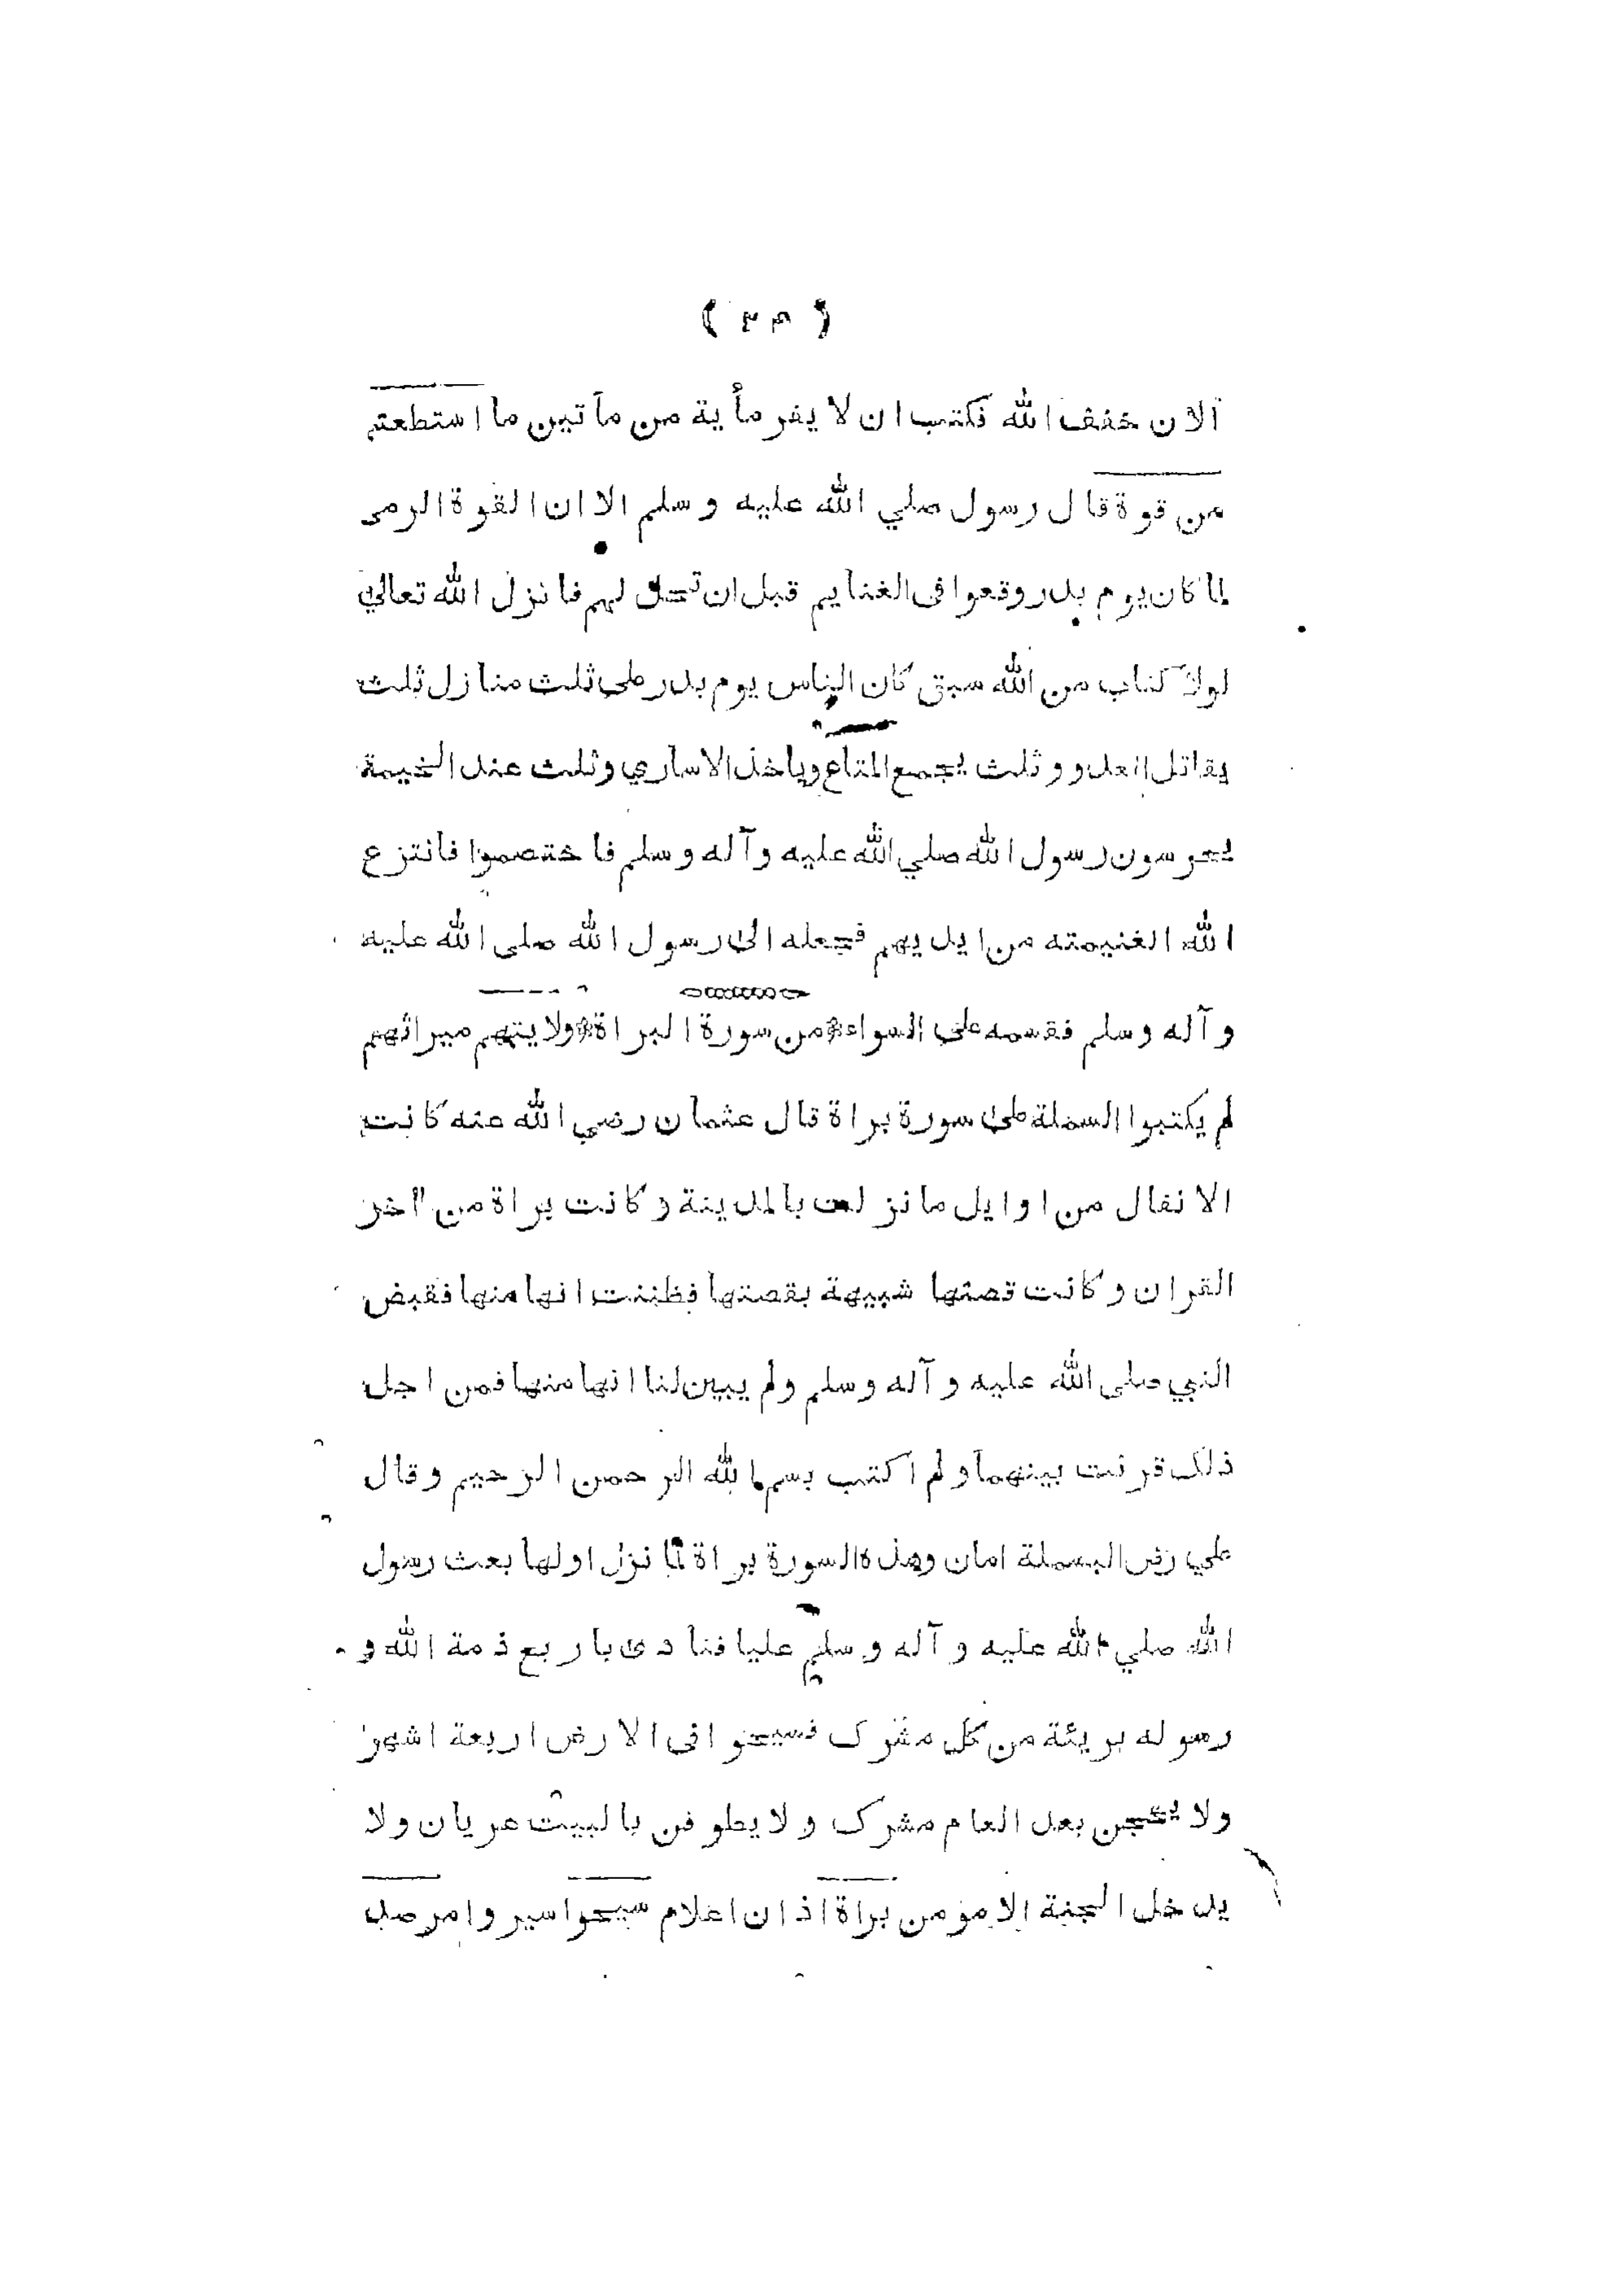 آلان خفف الله فكتب ان لا يفر مأية من مآتين ما استطعتم
من قوة قال رسول صلي الله عليه وسلم الا ان القوة الرمى
لما كان يوم بدر وقعوا فى الغنايم قبل ان تحل لهم فانزل الله تعالي
لولا كتاب من الله سبق كان الناس يوم بدر على ثلث منازل ثلث
يقاتل العدو و ثلث يجمع المتاع وياخذ الاساري وثلث عند الخيمة
يحرسون رسول الله صلي الله عليه وآله وسلم فاختصموا فانتزع
الله الغنيمته من ايديهم فجعله الى رسول الله صلى الله عليه
وآله وسلم فقسمه على السواء من سورة البراة ولايتهم ميراثهم
لم يكتبوا السملة على سورة براة قال عثمان رضي الله عنه كانت
الانفال من اوايل ما نزلت بالمدينة وكانت براة من آخر
القران وكانت قصتها شبيهة بقصتها فظننت انها منها فقبض
النبي صلى الله عليه وآله وسلم ولم يبين لنا انها منها فمن اجل
ذلك قرنت بينهما ولم اكتب بسم الله الرحمن الرحيم وقال
علي رض البسملة امان وهذه السورة براة لما نزل اولها بعث رسول
الله صلي الله عليه وآله وسلم عليا فنادى باربع ذمة الله و
رسوله بريئة من كل مشرك فسيحوا فى الارض اربعة اشهر
ولا يحجن بعد العام مشرك ولا يطوفن بالبيت عريان ولا
يدخل الجنة الا مؤمن براة اذان اعلام سيحوا سيروا مرصد